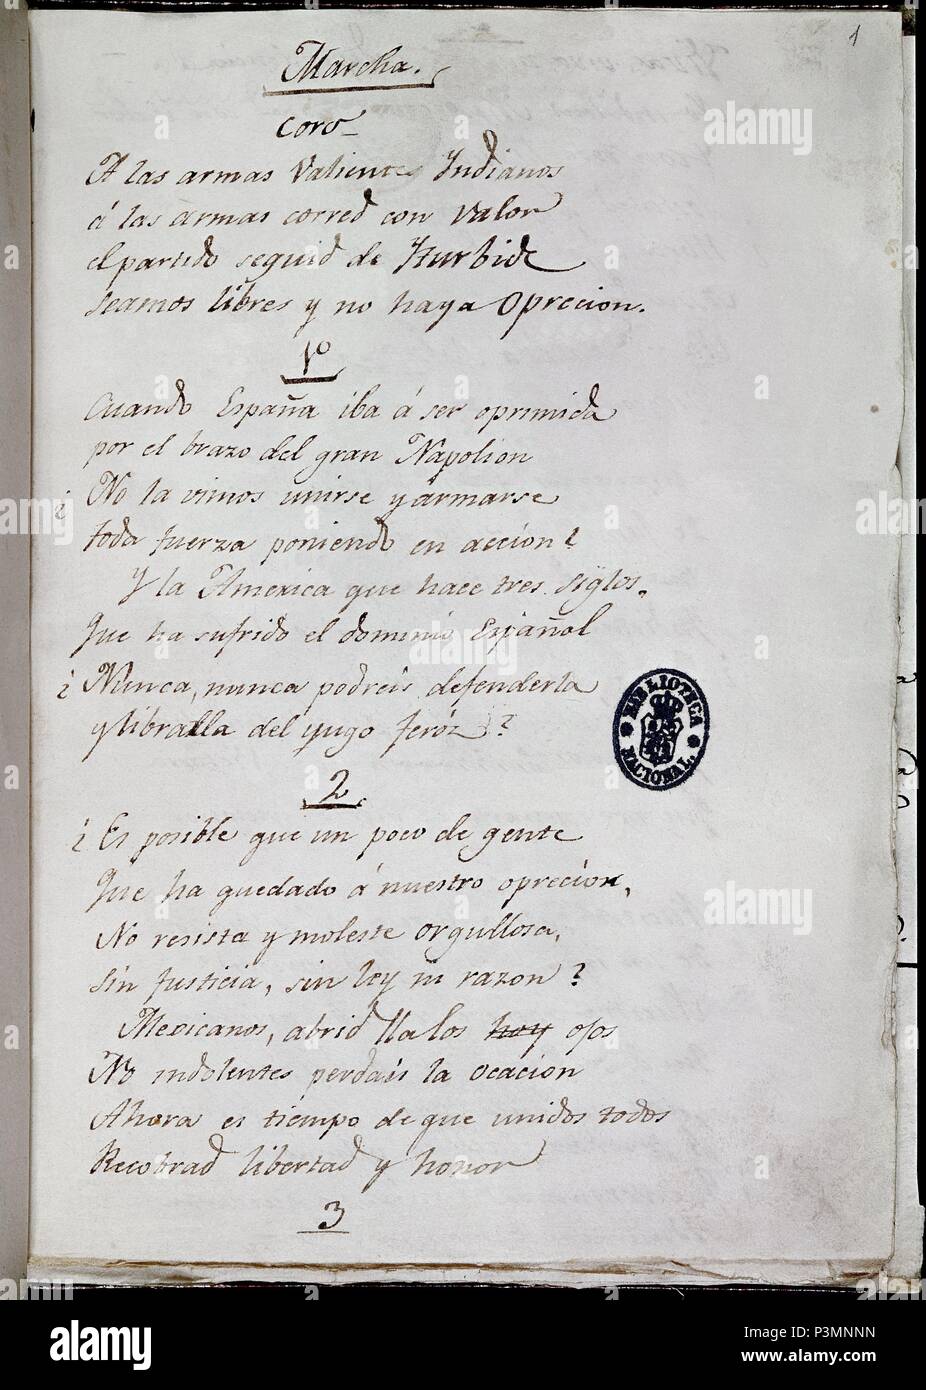 1
Marcha.
Coro
A las armas Valientes Yndianos
á las armas corred con valor
el partido seguid de Yturbide
seamos libres y no haya Oprecion.
1º
Cuando España iba á ser oprimida
por el brazo del gran Napolion
¿ No la vimos unirse y armarse
toda fuerza poniendo en acción?
Y la America que hace tres siglos.
Que ha sufrido el dominio Español
¿ Nunca, nunca podreis defenderla
y libralla del yugo feróz?
2
¿ Es posible que un poco de gente
Que ha quedado á nuestro oprecion,
No resista y moleste orgullosa,
sin Justicia, sin ley ni razon?
Mexicanos, abrid lla los hoy ojos
No indolentes perdais la ocacion
Ahora es tiempo de que unidos todos
Recobrad libertad y honor
3
BIBLIOTECA NACIONAL.
alamy
alamy
Image ID: P3MNNN
www.alamy.com